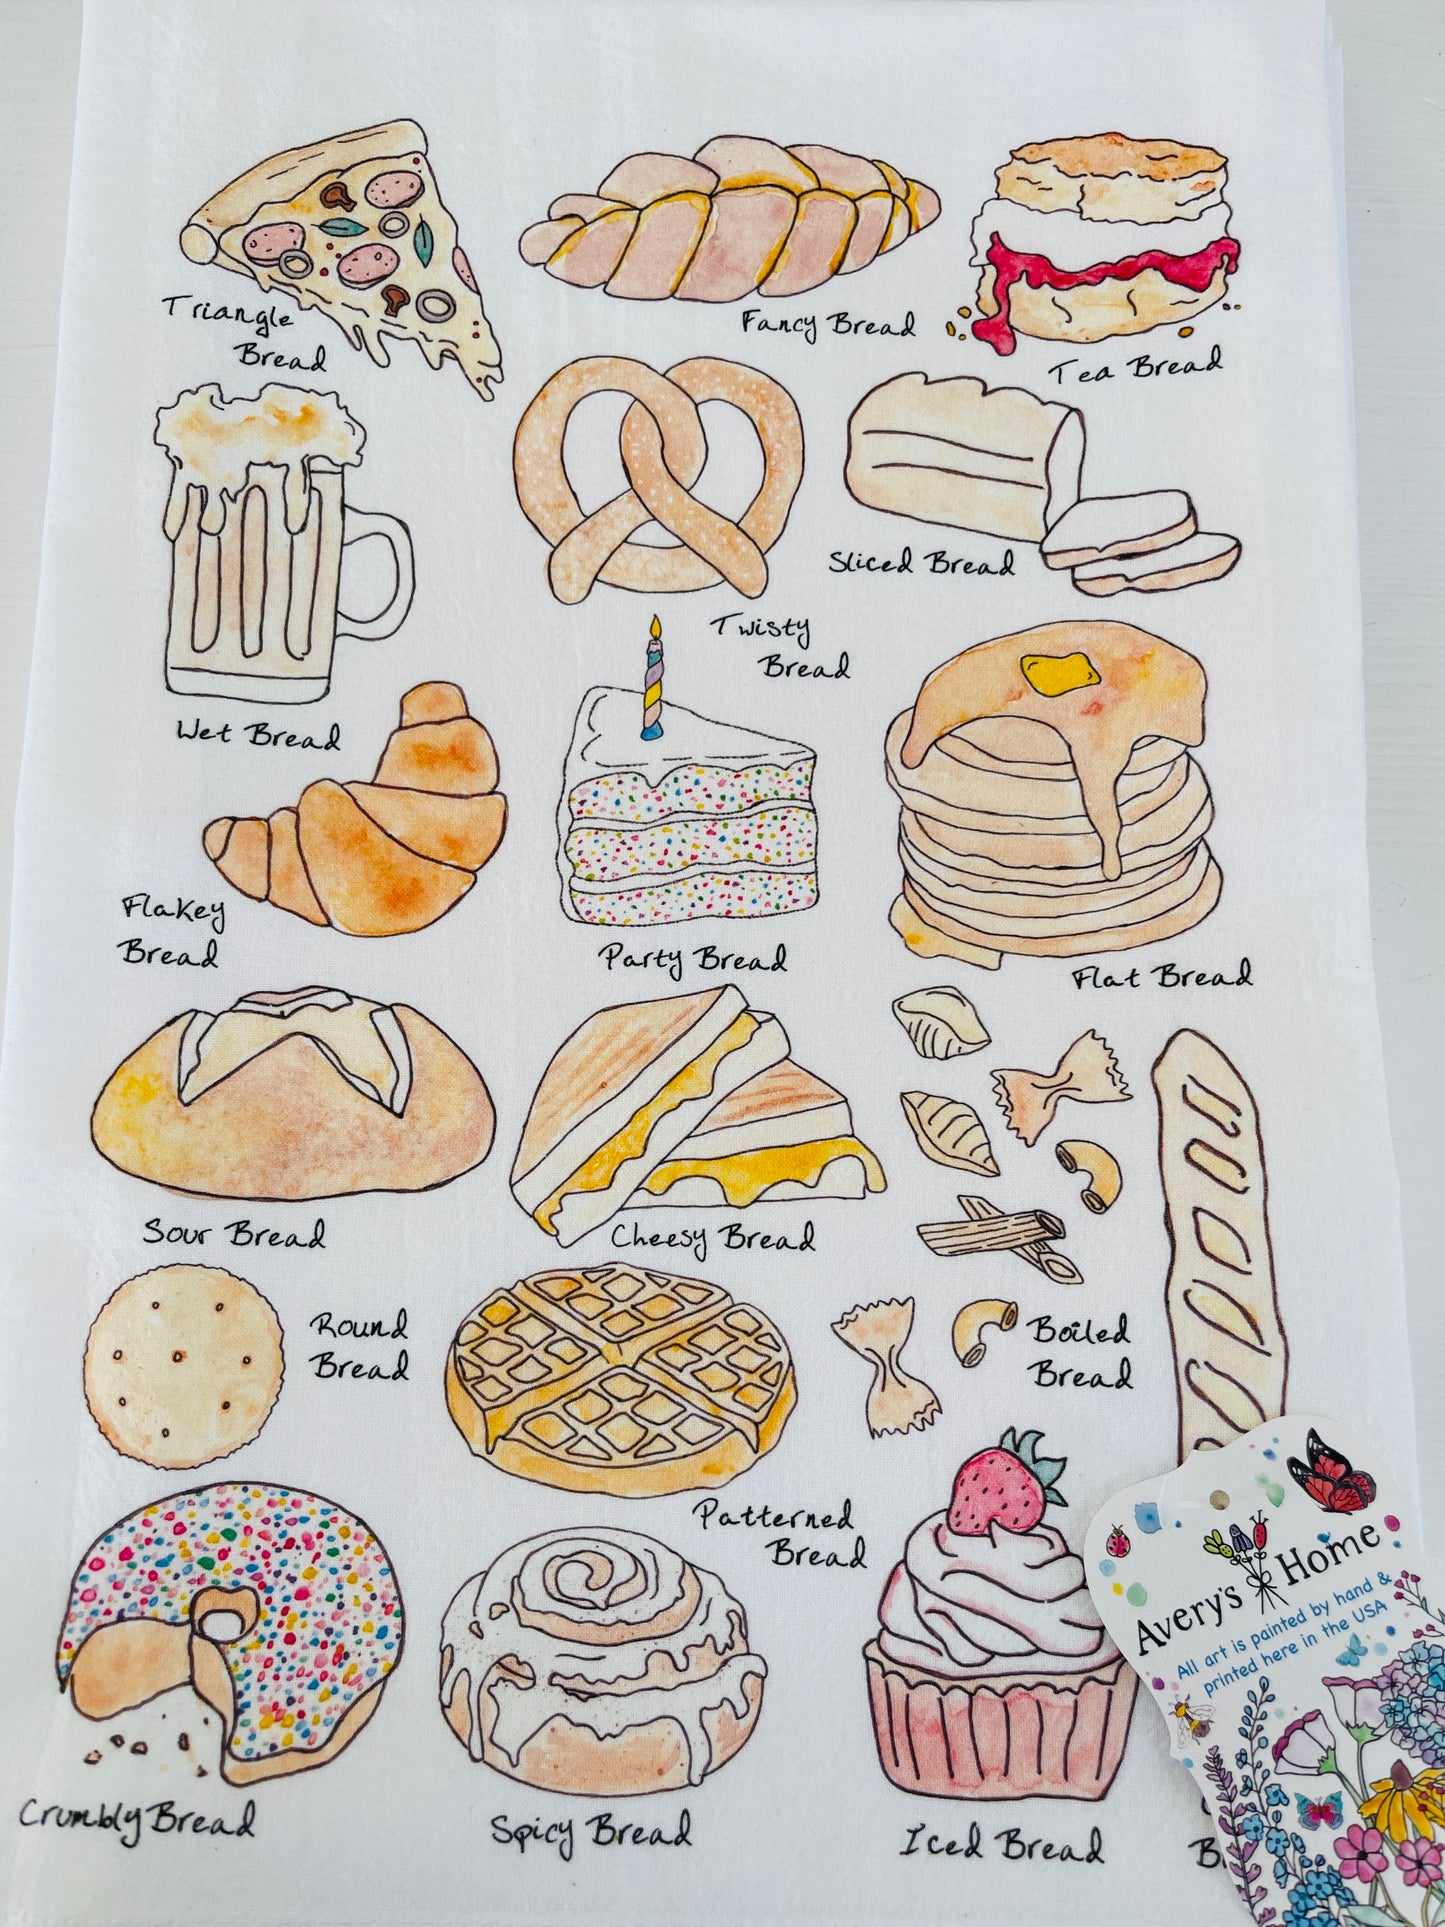 Triangle
Bread
Fancy Bread
Tea Bread
Wet Bread
Twisty
Bread
Sliced Bread
Flakey
Bread
Party Bread
Flat Bread
Sour Bread
Cheesy Bread
Round
Bread
Boiled
Bread
Patterned
Bread
Crumbly Bread
Spicy Bread
Iced Bread
Avery's Home
All art is painted by hand &
printed here in the USA